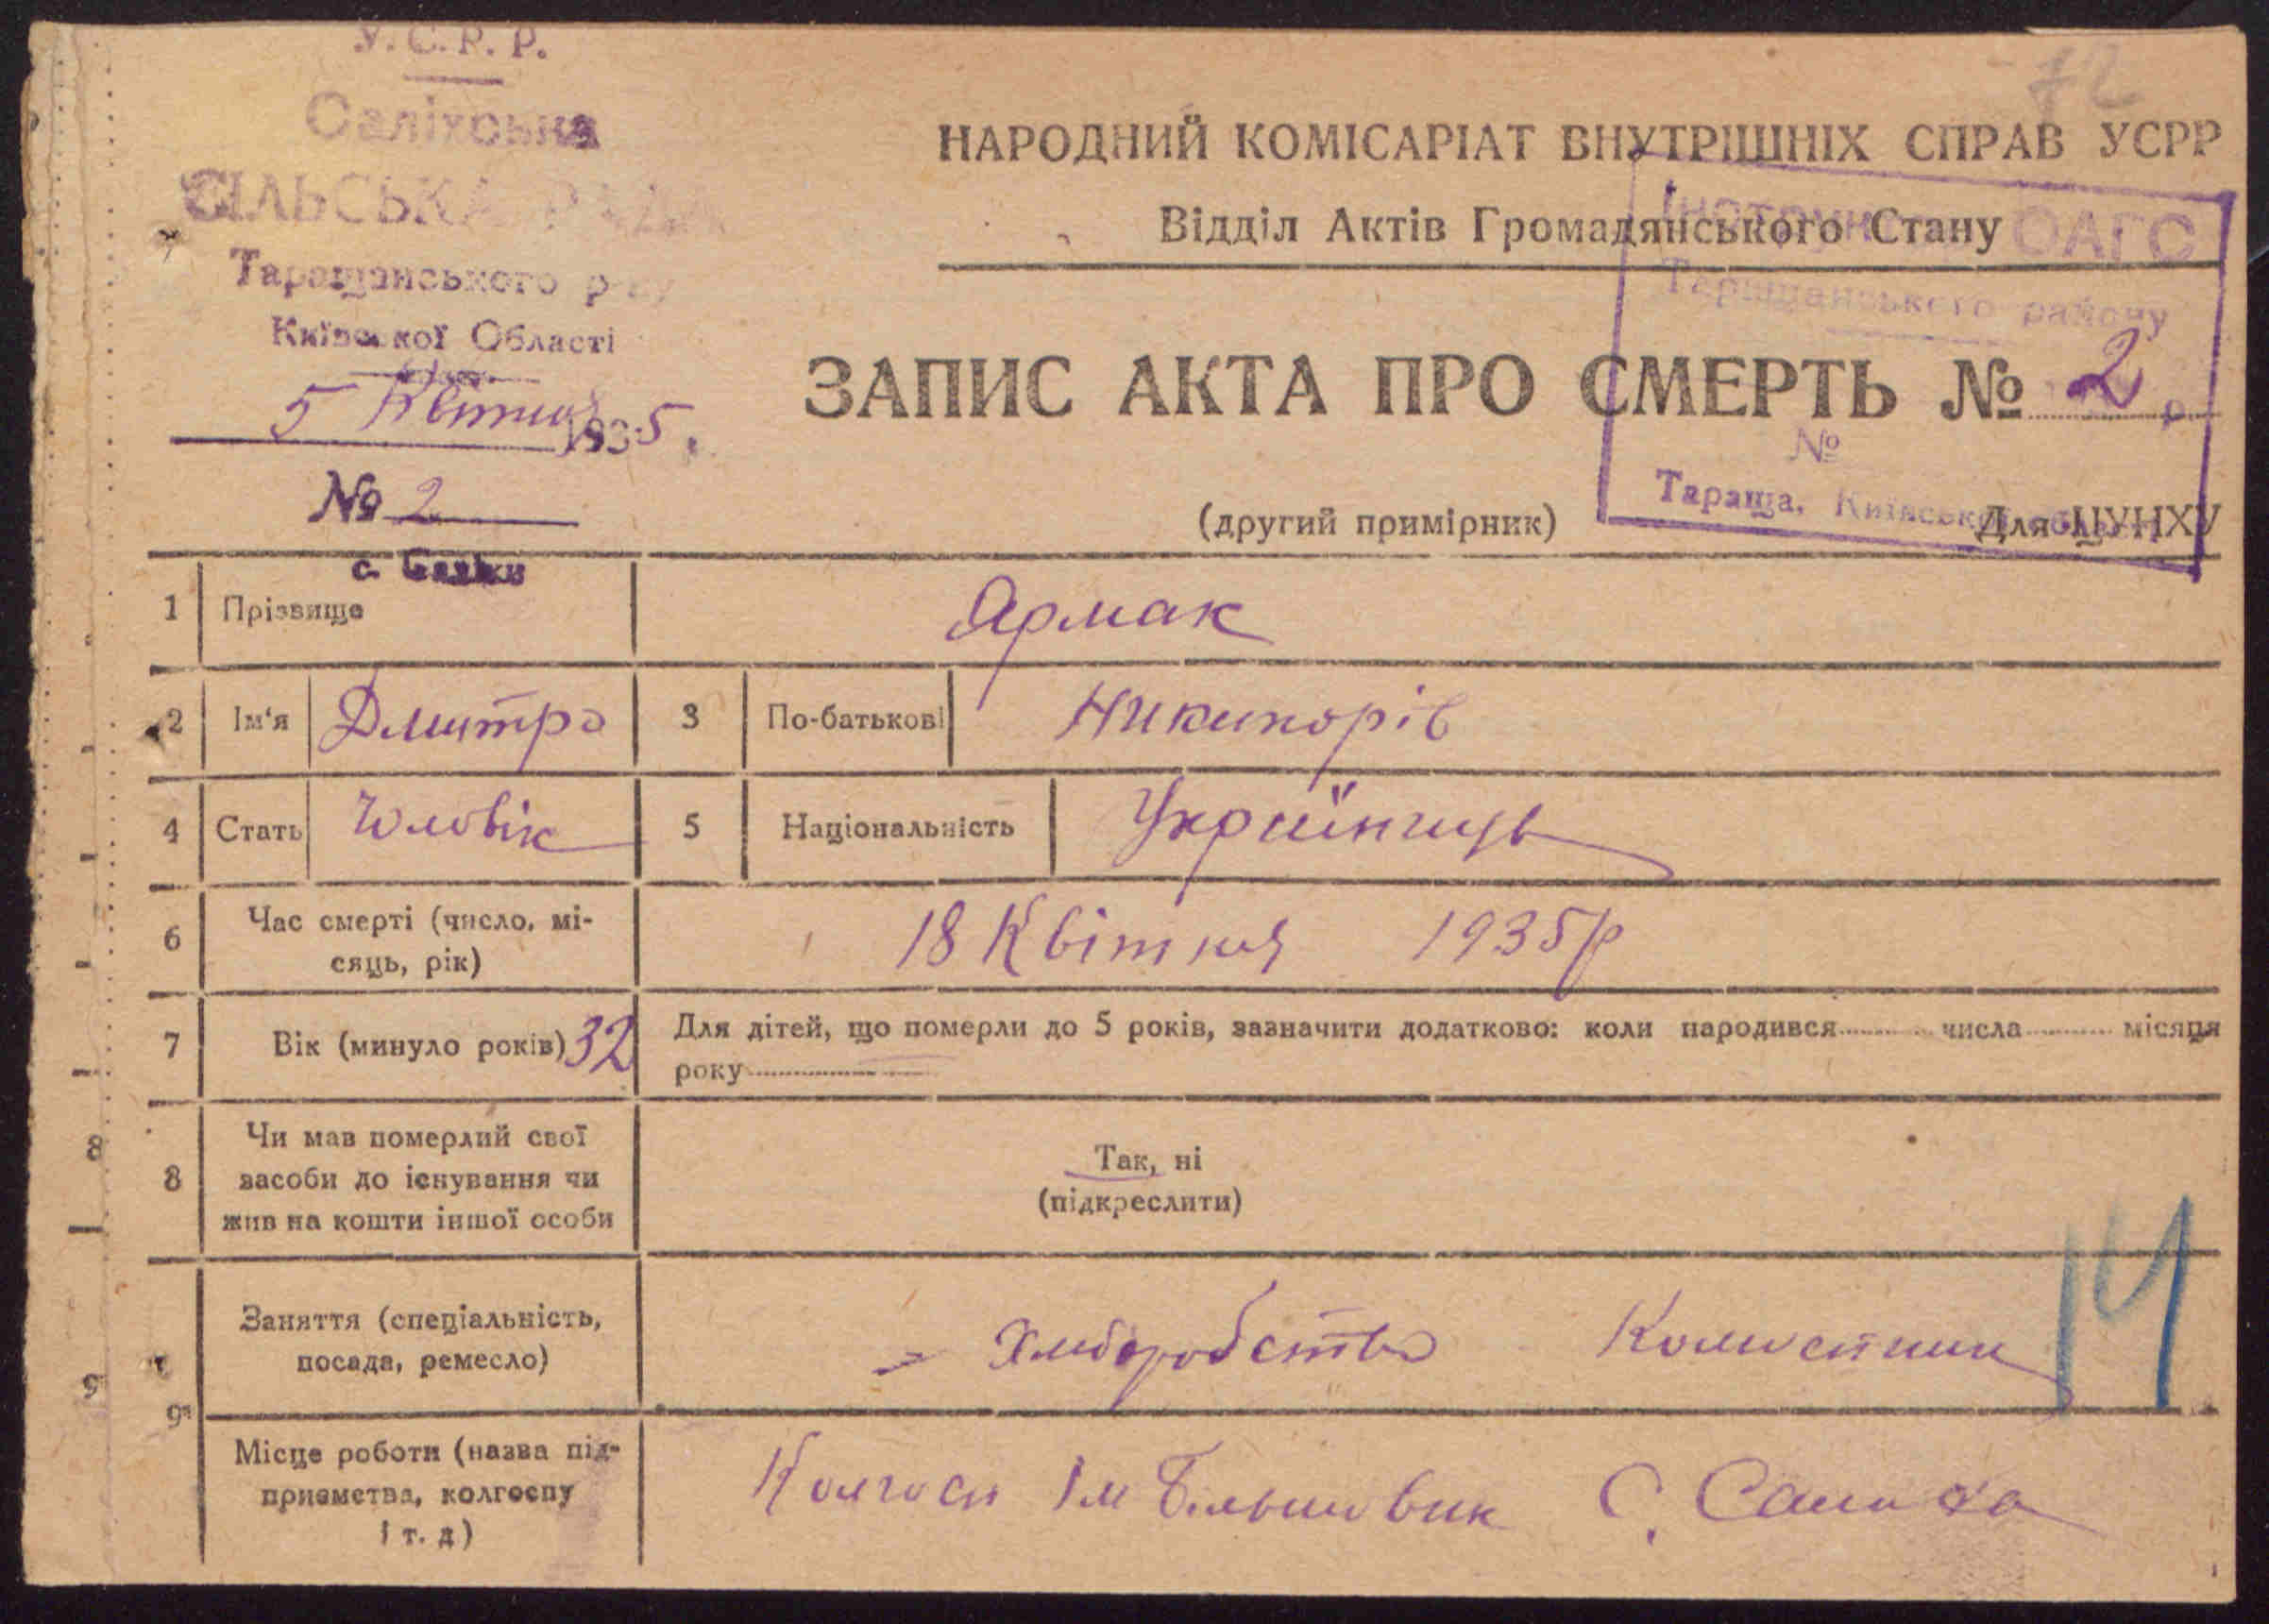 У.С.Р.Р.
Саліхська
СІЛЬСЬКА РАДА
Таращанського р-ну
Київської Області
5 Квітня 1935.
№ 2
с. Саліхи
72
НАРОДНИЙ КОМІСАРІАТ ВНУТРІШНІХ СПРАВ УСРР
Відділ Актів Громадянського Стану
ОАГС
Таращанського району
№
Тараща, Київської області
ЗАПИС АКТА ПРО СМЕРТЬ № 2
(другий примірник)
Для ЦУНХУ
1 Прізвище Ярмак
2 Ім'я Дмитро 3 По-батькові Никипорів
4 Стать Чоловік 5 Національність Українець
6 Час смерті (число, мі-
сяць, рік) 18 Квітня 1935р
7 Вік (минуло років) 32 Для дітей, що померли до 5 років, зазначити додатково: коли народився числа місяця
року
8 8 Чи мав померлий свої
засоби до існування чи
жив на кошти іншої особи
Так, ні
(підкреслити)
9 9 Заняття (спеціальність,
посада, ремесло) Хліборобство
14
Місце роботи (назва під-
приємства, колгоспу
і т. д) Колгосп Ім Більшовик С. Салиха